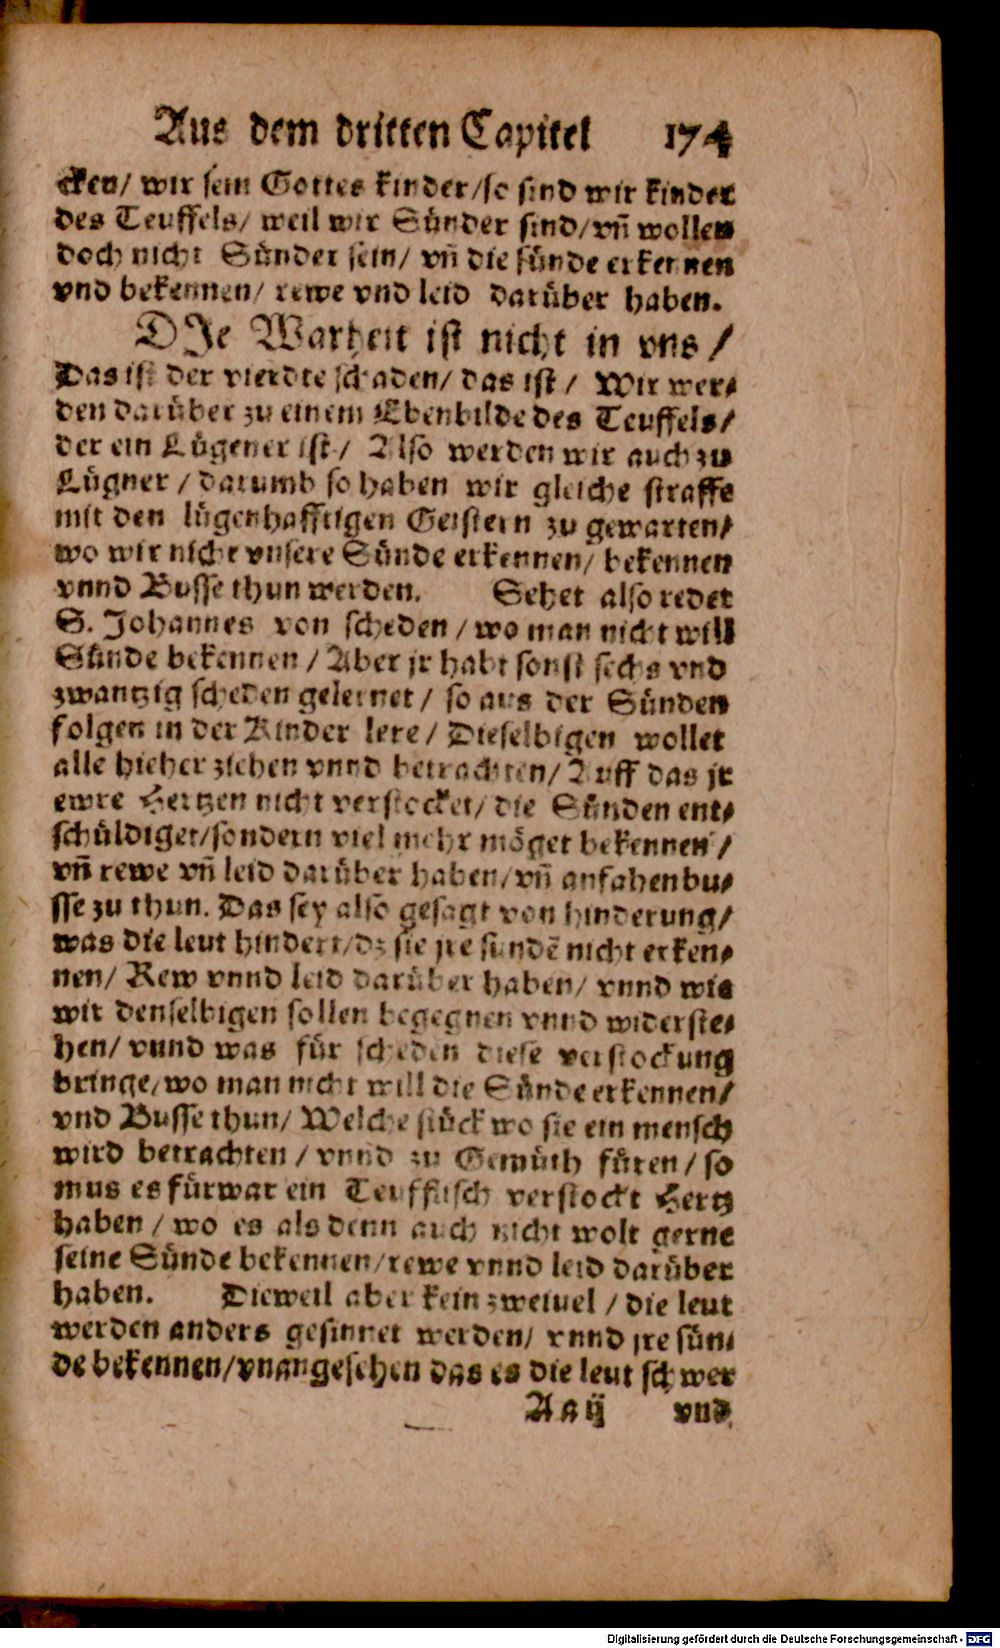 Aus dem dritten Capitel 174
cken/ wir sein Gottes kinder/so sind wir kinder
des Teuffels/ weil wir Sünder sind/vñ wollen
doch nicht Sünder sein/ vñ die sünde erkennen
vnd bekennen/ rewe vnd leid darüber haben.
DJe Warheit ist nicht in vns/
Das ist der vierdte schaden/ das ist/ Wir wer-
den darüber zu einem Ebenbilde des Teuffels/
der ein Lügener ist/ Also werden wir auch zu
Lügner/ darumb so haben wir gleiche straffe
mit den lügenhafftigen Geistern zu gewarten/
wo wir nicht vnsere Sünde erkennen/ bekennen
vnnd Busse thun werden. Sehet also redet
S. Johannes von scheden/ wo man nicht will
Sünde bekennen/ Aber jr habt sonst sechs vnd
zwantzig scheden gelernet/ so aus der Sünden
folgen in der Kinder lere/ Dieselbigen wollet
alle hieher ziehen vnnd betrachten/ Auff das jr
ewre Hertzen nicht verstocket/ die Sünden ent-
schüldiget/sondern viel mehr möget bekennen/
vñ rewe vñ leid darüber haben/vñ anfahen bu-
sse zu thun. Das sey also gesagt von hinderung/
was die leut hindert/dz sie jre sündẽ nicht erken-
nen/ Rew vnnd leid darüber haben/ vnnd wie
wir denselbigen sollen begegnen vnnd widerste-
hen/ vnnd was für scheden diese verstockung
bringe/wo man nicht will die Sünde erkennen/
vnd Busse thun/ Welche stück wo sie ein mensch
wird betrachten/ vnnd zu Gemüth füren/ so
mus es fürwar ein Teuffisch verstockt Hertz
haben/ wo es als denn auch nicht wolt gerne
seine Sünde bekennen/rewe vnnd leid darüber
haben. Dieweil aber kein zweiuel/ die leut
werden anders gesinnet werden/ vnnd jre sün-
de bekennen/vnangesehen das es die leut schwer
Aa ij vnd
Digitalisierung gefördert durch die Deutsche Forschungsgemeinschaft - DFG